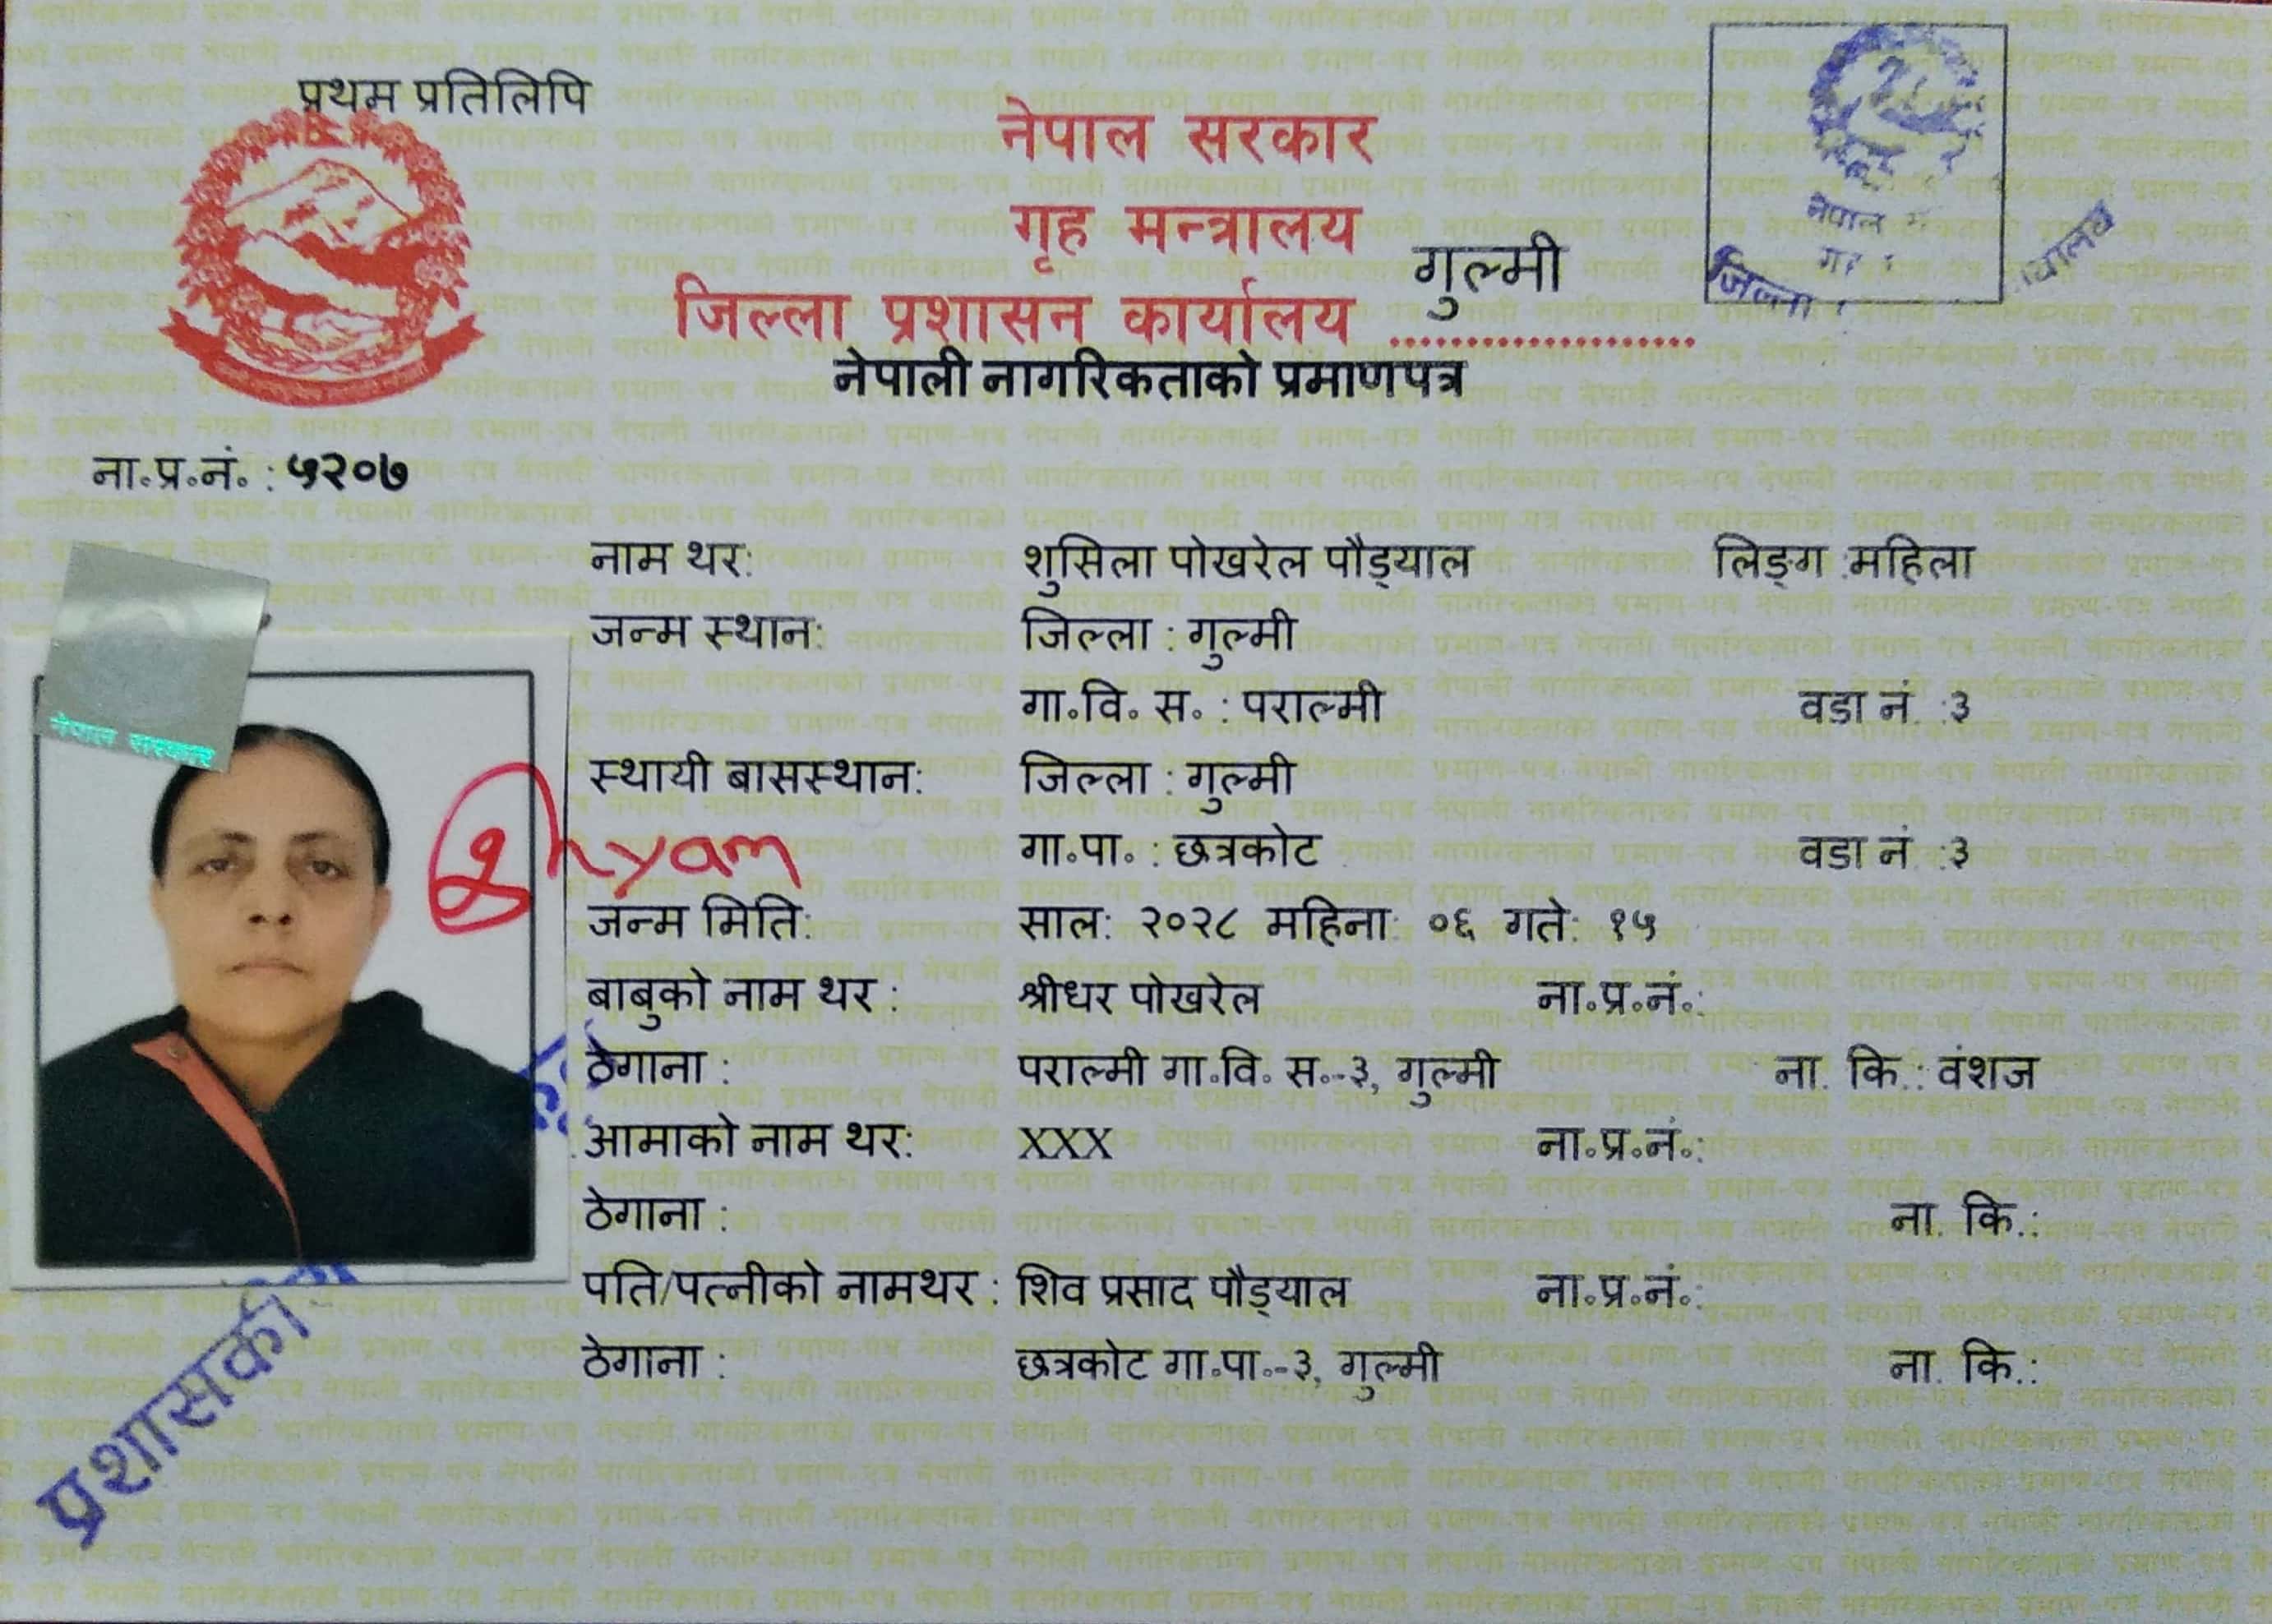 प्रथम प्रतिलिपि
नेपाल सरकार
गृह मन्त्रालय
जिल्ला प्रशासन कार्यालय गुल्मी
नेपाली नागरिकताको प्रमाणपत्र
नेपाल
जिल्ला
ना.प्र.नं. : ५२०७
नाम थर: शुसिला पोखरेल पौड्याल लिङ्ग :महिला
जन्म स्थान: जिल्ला : गुल्मी
गा.वि. स. : पराल्मी वडा नं. :३
नेपाल सरकार
स्थायी बासस्थान: जिल्ला : गुल्मी
गा.पा. : छत्रकोट वडा नं. :३
Shyam
जन्म मिति: साल: २०२८ महिना: ०६ गते: १५
बाबुको नाम थर : श्रीधर पोखरेल ना.प्र.नं.:
ठेगाना : पराल्मी गा.वि. स.-३, गुल्मी ना. कि.: वंशज
आमाको नाम थर: XXX ना.प्र.नं.:
ठेगाना : ना. कि.:
पति/पत्नीको नामथर : शिव प्रसाद पौड्याल ना.प्र.नं.:
ठेगाना : छत्रकोट गा.पा.-३, गुल्मी ना. कि.: